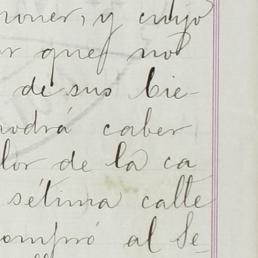 poner, y cuyo
or que no
de sus bie-
podrá caber
lor de la ca
sétima calle
compró al Se-